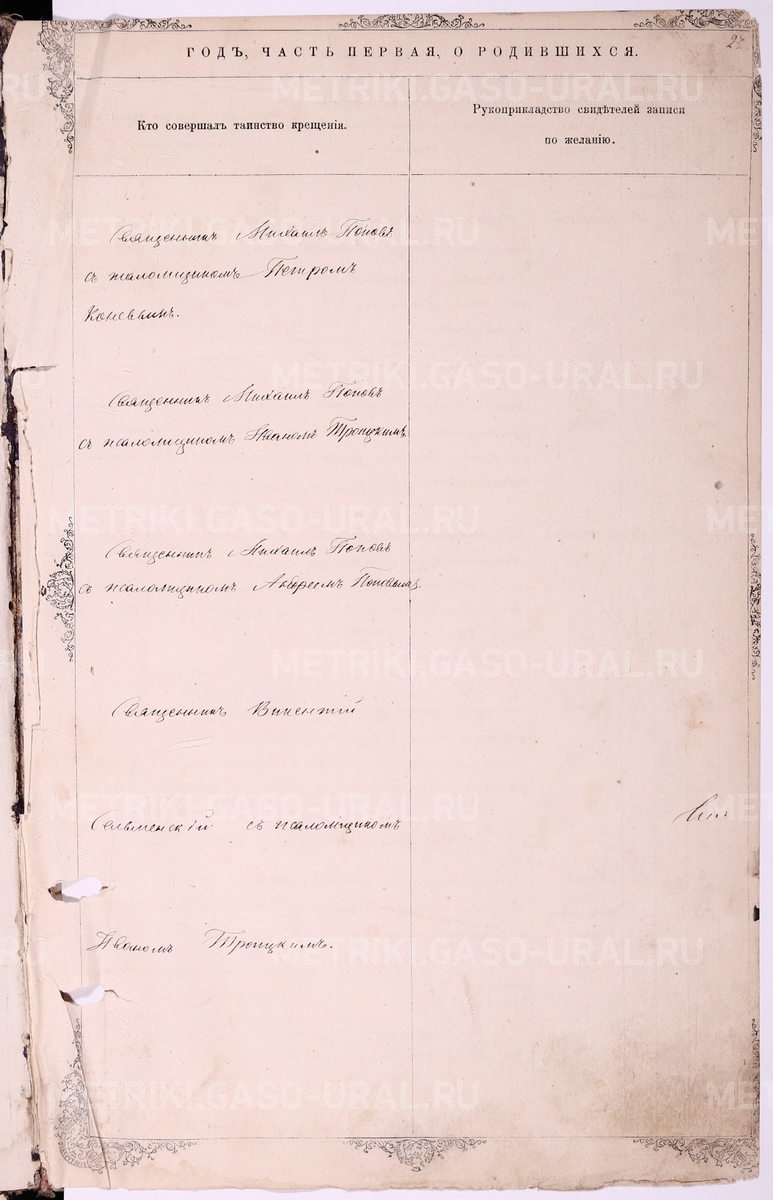 ГОДЪ, ЧАСТЬ ПЕРВАЯ, О РОДИВШИХСЯ.
Кто совершалъ таинство крещенія.
Рукоприкладство свидѣтелей записи
по желанію.
Священникъ Михаилъ Поповъ
съ псаломщикомъ Петромъ
Священникъ Михаилъ Поповъ
съ псаломщикомъ Иваномъ Троицкимъ.
Священникъ Михаилъ Поповъ
съ псаломщикомъ Андреемъ Поповымъ.
Священникъ Викентій
Сельменскій съ псаломщикомъ
Иваномъ Троицкимъ.
METRIKI.GASO-URAL.RU